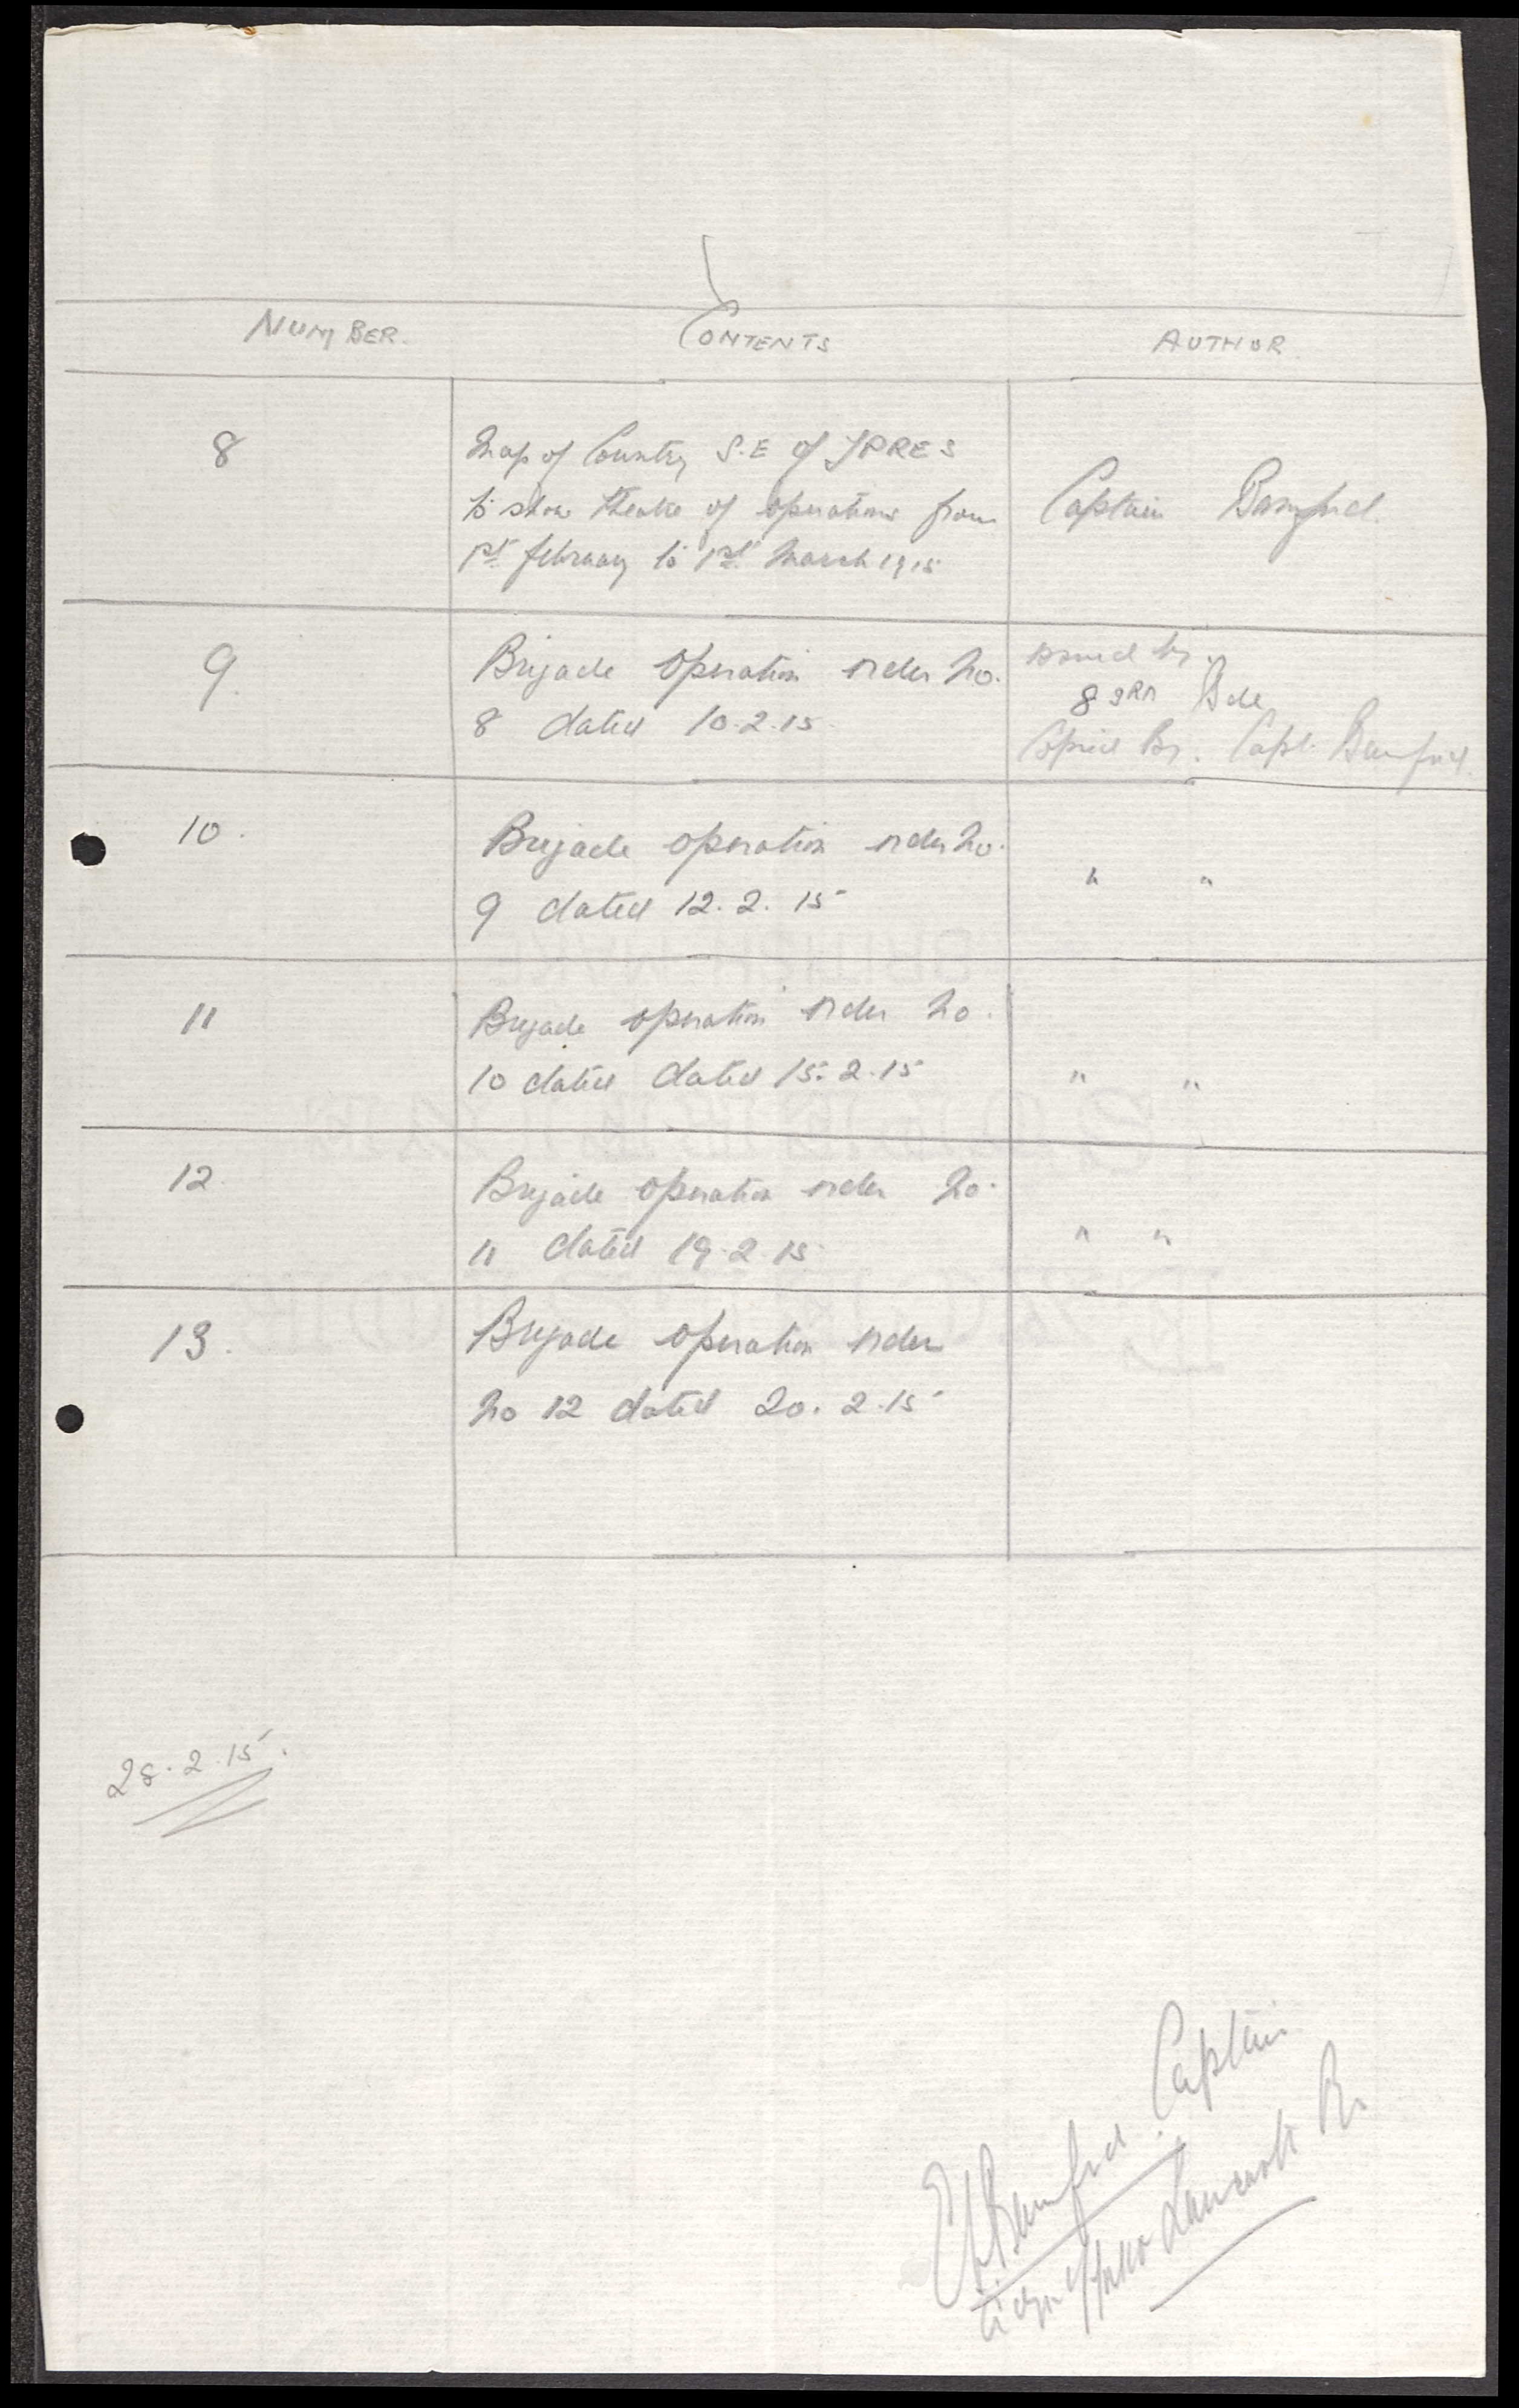 NUMBER. CONTENTS AUTHOR
8
Map of Country S.E of YPRES
to show theatre of operations from
1st february to 1st March 1915
Captain Bamford.
9.
Brigade Operation order No.
8 dated 10.2.15.
issued by.
83RD Bde
Copied by. Capt. Bamford.
10.
Brigade operation order No.
9 dated 12.2.15
" "
11
Brigade operation order No.
10 dated dated 15.2.15
" "
12.
Brigade operation order No.
11 dated 19.2.15
" "
13.
Brigade operation order
No 12 dated 20.2.15
28.2.15.
Bamford. Captain
Lancaster R.